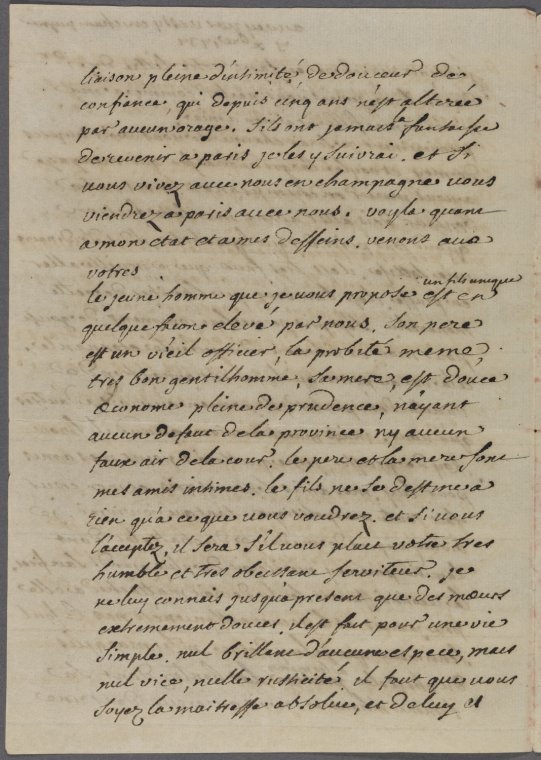 liaison pleine d'intimité, de douceur de
confiance, qui depuis cinq ans n'est alterée
par aucun orage. s'ils ont jamais la fantaisie
de revenir a paris je les y suivrai. et si
vous vivez avec nous en champagne vous
viendrez a paris avec nous. voyla quant
a mon état et a mes desseins. venons aux
votres
le jeune homme que je vous propose est un fils unique en
quelque facon elevé par nous. son pere
est un vieil officier, la probité meme,
tres bon gentilhomme, sa mere est douce
œconome pleine de prudence, n'ayant
aucun defaut de la province ny aucun
faux air de la cour. le pere et la mere sont
mes amis intimes. le fils ne se destine a
rien qu'a ce que vous voudrez. et si vous
l'acceptez, il sera s'il vous plait votre tres
humble et tres obeissant serviteur. je
ne luy connais jusqu'a present que des mœurs
extremement douces. il est fait pour une vie
simple. nul brillant d'aucune espece, mais
nul vice, nulle rusticité il faut que vous
soyez la maitresse absolue, et de luy et